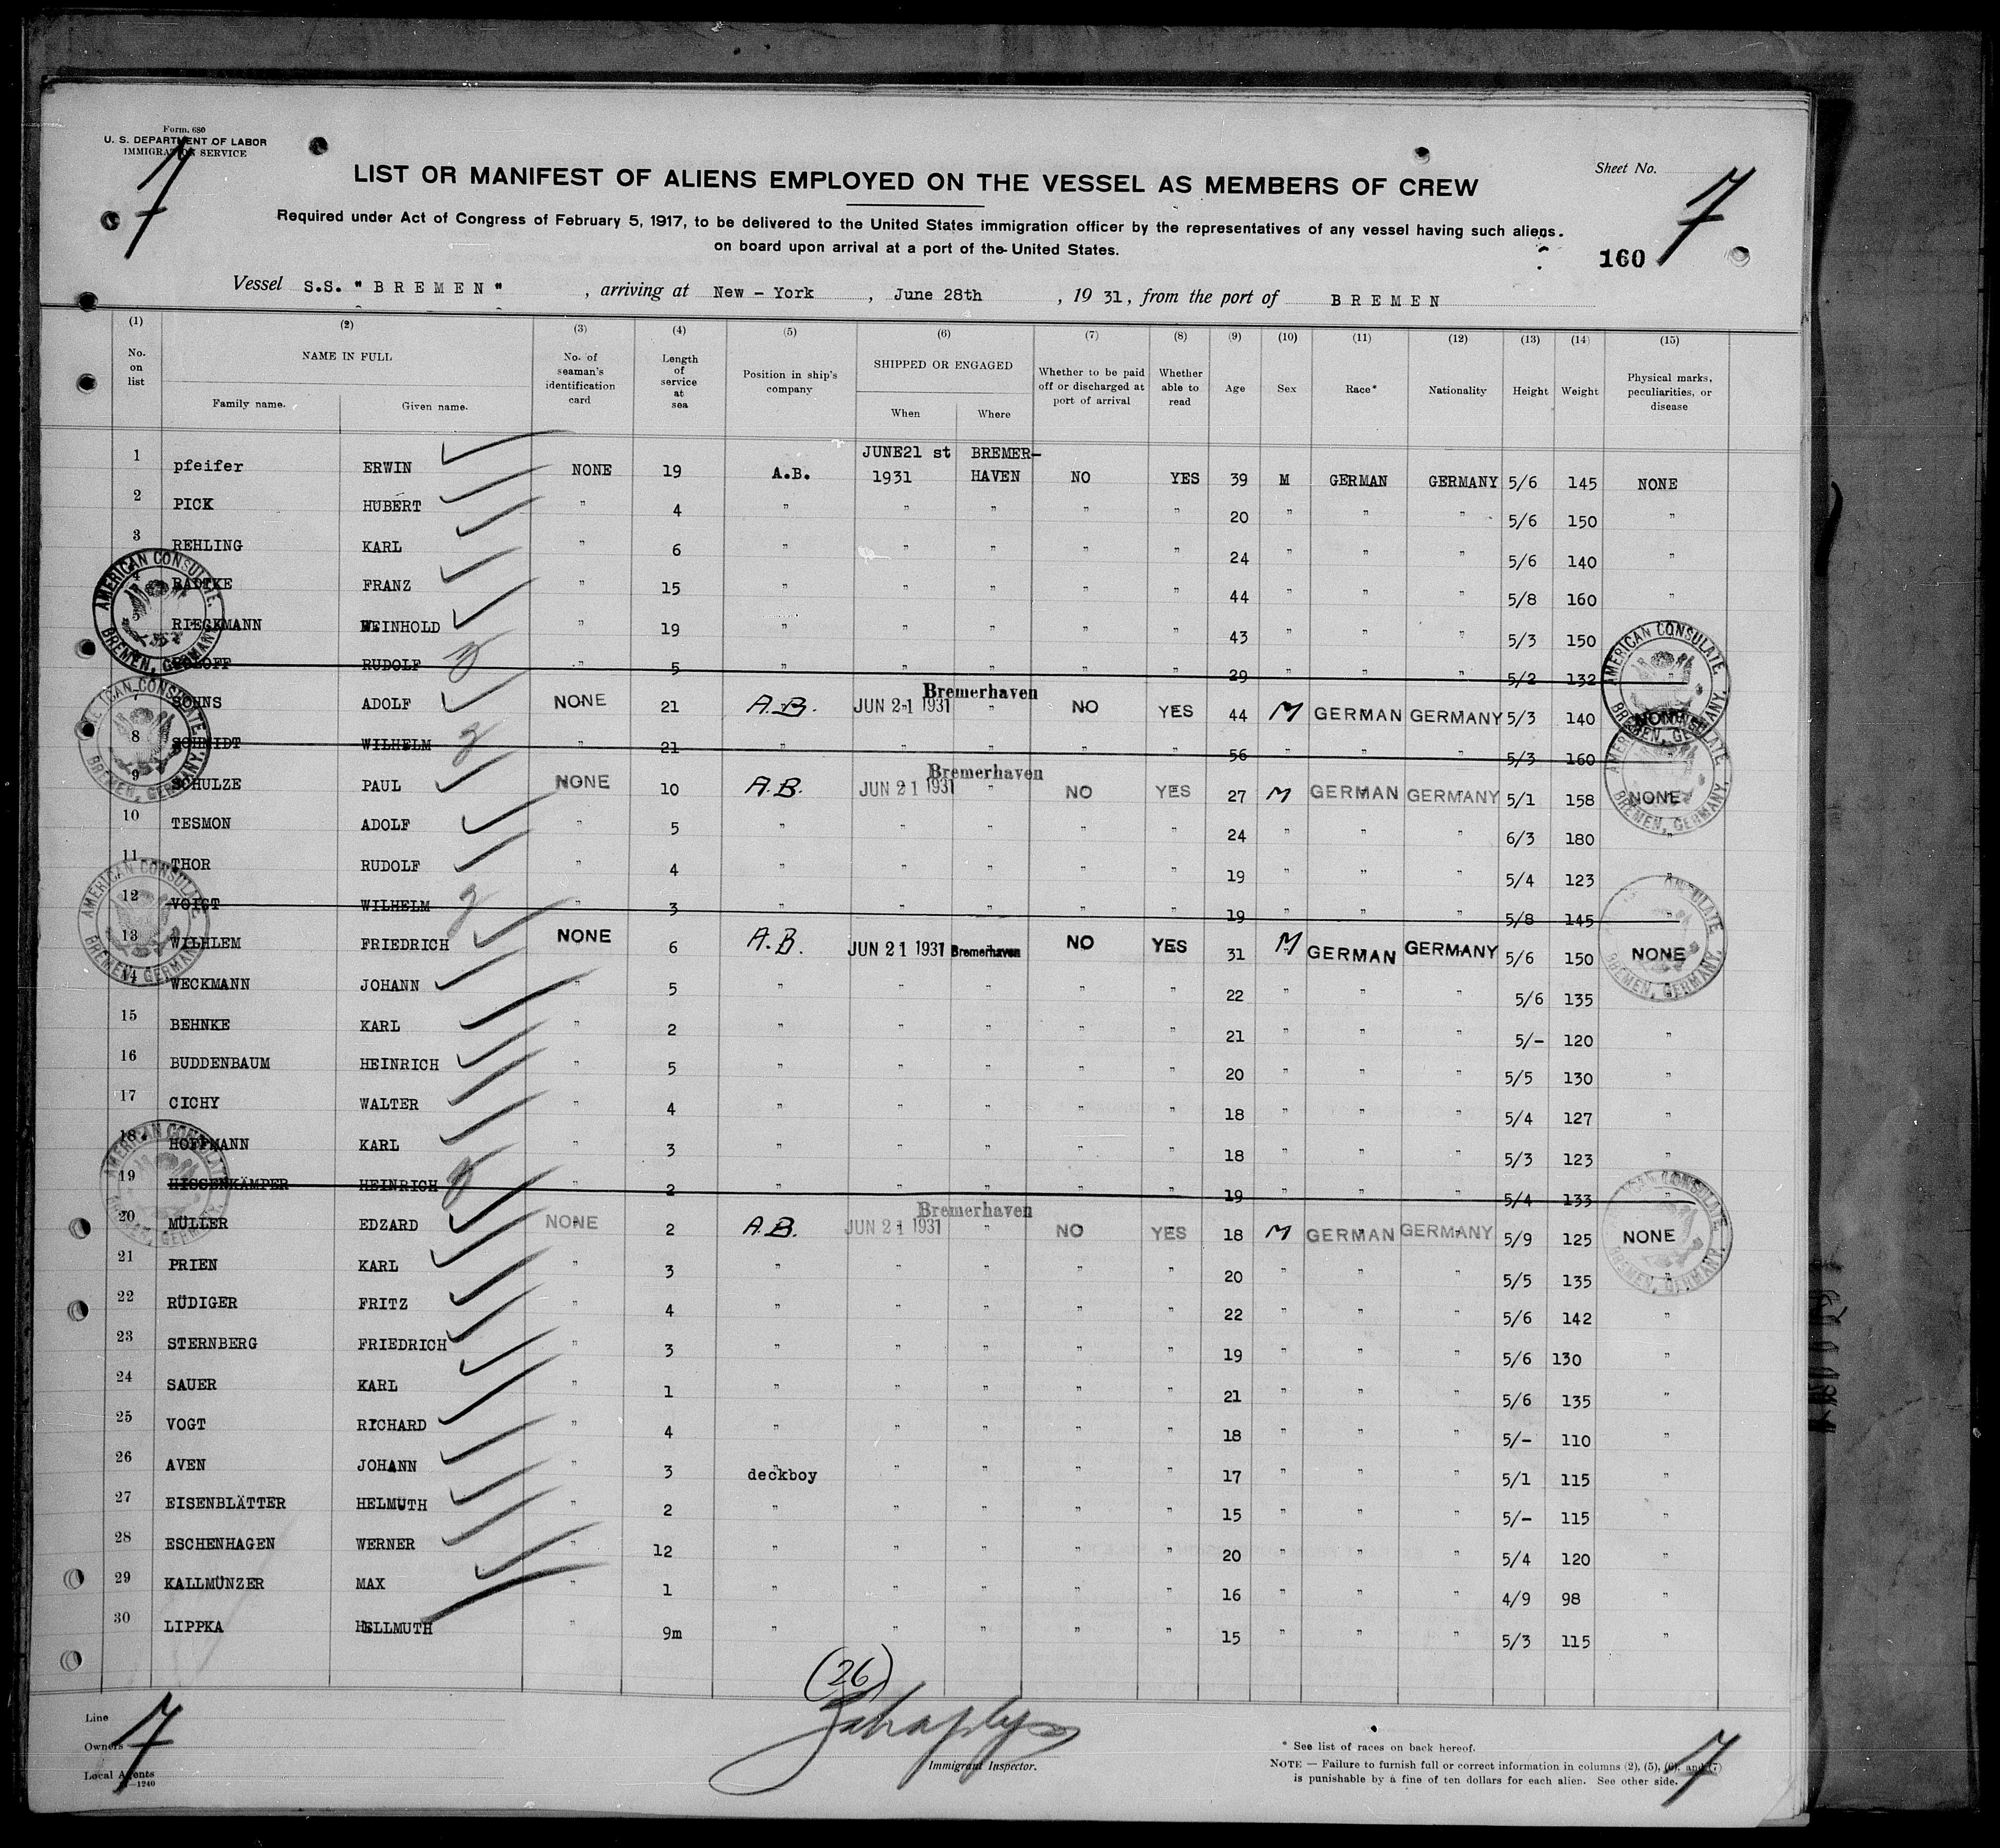 Form. 680
U. S. DEPARTMENT OF LABOR
IMMIGRATION SERVICE
7
Sheet No. 7
LIST OR MANIFEST OF ALIENS EMPLOYED ON THE VESSEL AS MEMBERS OF CREW
Required under Act of Congress of February 5, 1917, to be delivered to the United States immigration officer by the representatives of any vessel having such aliens
on board upon arrival at a port of the United States.
160
Vessel S.S. "BREMEN", arriving at New-York, June 28th, 1931, from the port of BREMEN
(1) (2) (3) (4) (5) (6) (7) (8) (9) (10) (11) (12) (13) (14) (15)
No. on list NAME IN FULL Family name. Given name. No. of seaman's identification card Length of service at sea Position in ship's company SHIPPED OR ENGAGED When Where Whether to be paid off or discharged at port of arrival Whether able to read Age Sex Race* Nationality Height Weight Physical marks, peculiarities, or disease
1 pfeifer ERWIN NONE 19 A.B. JUNE21 st 1931 BREMER-HAVEN NO YES 39 M GERMAN GERMANY 5/6 145 NONE
2 PICK HUBERT " 4 " " " " " 20 " " " 5/6 150 "
3 REHLING KARL " 6 " " " " " 24 " " " 5/6 140 "
4 RADTKE FRANZ " 15 " " " " " 44 " " " 5/8 160 "
5 RIEGKMANN WEINHOLD " 19 " " " " " 43 " " " 5/3 150 "
RUDOLF " 5 " " " " " 29 " " " 5/2 132 "
7 SOHNS ADOLF NONE 21 A.B. JUN 21 1931 Bremerhaven NO YES 44 M GERMAN GERMANY 5/3 140 NONE
8 SCHMIDT WILHELM " 21 " " " " " 56 " " " 5/3 160
9 SCHULZE PAUL NONE 10 A.B. JUN 21 1931 Bremerhaven NO YES 27 M GERMAN GERMANY 5/1 158 NONE
10 TESMON ADOLF " 5 " " " " " 24 " " " 6/3 180 "
11 THOR RUDOLF " 4 " " " " " 19 " " " 5/4 123 "
12 VOIGT WILHELM " 3 " " " " " 19 " " " 5/8 145 "
13 WILHLEM FRIEDRICH NONE 6 A.B. JUN 21 1931 Bremerhaven NO YES 31 M GERMAN GERMANY 5/6 150 NONE
14 WECKMANN JOHANN " 5 " " " " " 22 " " " 5/6 135
15 BEHNKE KARL " 2 " " " " " 21 " " " 5/- 120 "
16 BUDDENBAUM HEINRICH " 5 " " " " " 20 " " " 5/5 130 "
17 CICHY WALTER " 4 " " " " " 18 " " " 5/4 127 "
18 HOFFMANN KARL " 3 " " " " " 18 " " " 5/3 123 "
19 HISSENKÄMPER HEINRICH " 2 " " " " " 19 " " " 5/4 133 "
20 MÜLLER EDZARD NONE 2 A.B. JUN 21 1931 Bremerhaven NO YES 18 M GERMAN GERMANY 5/9 125 NONE
21 PRIEN KARL " 3 " " " " " 20 " " " 5/5 135 "
22 RÜDIGER FRITZ " 4 " " " " " 22 " " " 5/6 142 "
23 STERNBERG FRIEDRICH " 3 " " " " " 19 " " " 5/6 130 "
24 SAUER KARL " 1 " " " " " 21 " " " 5/6 135 "
25 VOGT RICHARD " 4 " " " " " 18 " " " 5/- 110 "
26 AVEN JOHANN " 3 deckboy " " " " 17 " " " 5/1 115 "
27 EISENBLÄTTER HELMUTH " 2 " " " " " 15 " " " 5/- 115 "
28 ESCHENHAGEN WERNER " 12 " " " " " 20 " " " 5/4 120 "
29 KALLMÜNZER MAX " 1 " " " " " 16 " " " 4/9 98 "
30 LIPPKA HELLMUTH " 9m " " " " " 15 " " " 5/3 115 "
AMERICAN CONSULATE, BREMEN, GERMANY.
AMERICAN CONSULATE, BREMEN, GERMANY.
AMERICAN CONSULATE, BREMEN, GERMANY.
AMERICAN CONSULATE, BREMEN, GERMANY.
AMERICAN CONSULATE, BREMEN, GERMANY.
AMERICAN CONSULATE, BREMEN, GERMANY.
AMERICAN CONSULATE, BREMEN, GERMANY.
AMERICAN CONSULATE, BREMEN, GERMANY.
(26)
Line
Owners
Local Agents
—1240
7
Immigrant Inspector.
* See list of races on back hereof.
NOTE — Failure to furnish full or correct information in columns (2), (5), (6), and (7)
is punishable by a fine of ten dollars for each alien. See other side.
7